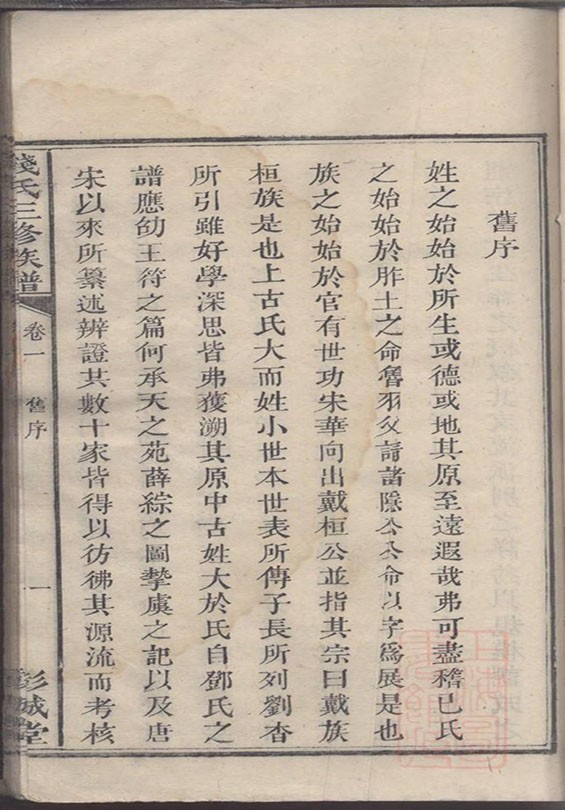 舊序
姓之始始於所生或德或地其原至遠遐哉弗可盡稽已氏
之始始於胙土之命魯羽父請諸隱公公命以字爲展是也
族之始始於官有世功宋華向出戴桓公並指其宗曰戴族
桓族是也上古氏大而姓小世本世表所傳子長所列劉杳
所引雖好學深思皆弗獲溯其原中古姓大於氏自鄧氏之
譜應劭王符之篇何承天之苑薛綜之圖摯虞之記以及唐
宋以來所纂述辨證其數十家皆得以彷彿其源流而考核
錢氏三修族譜
卷一
舊序
一
彭城堂